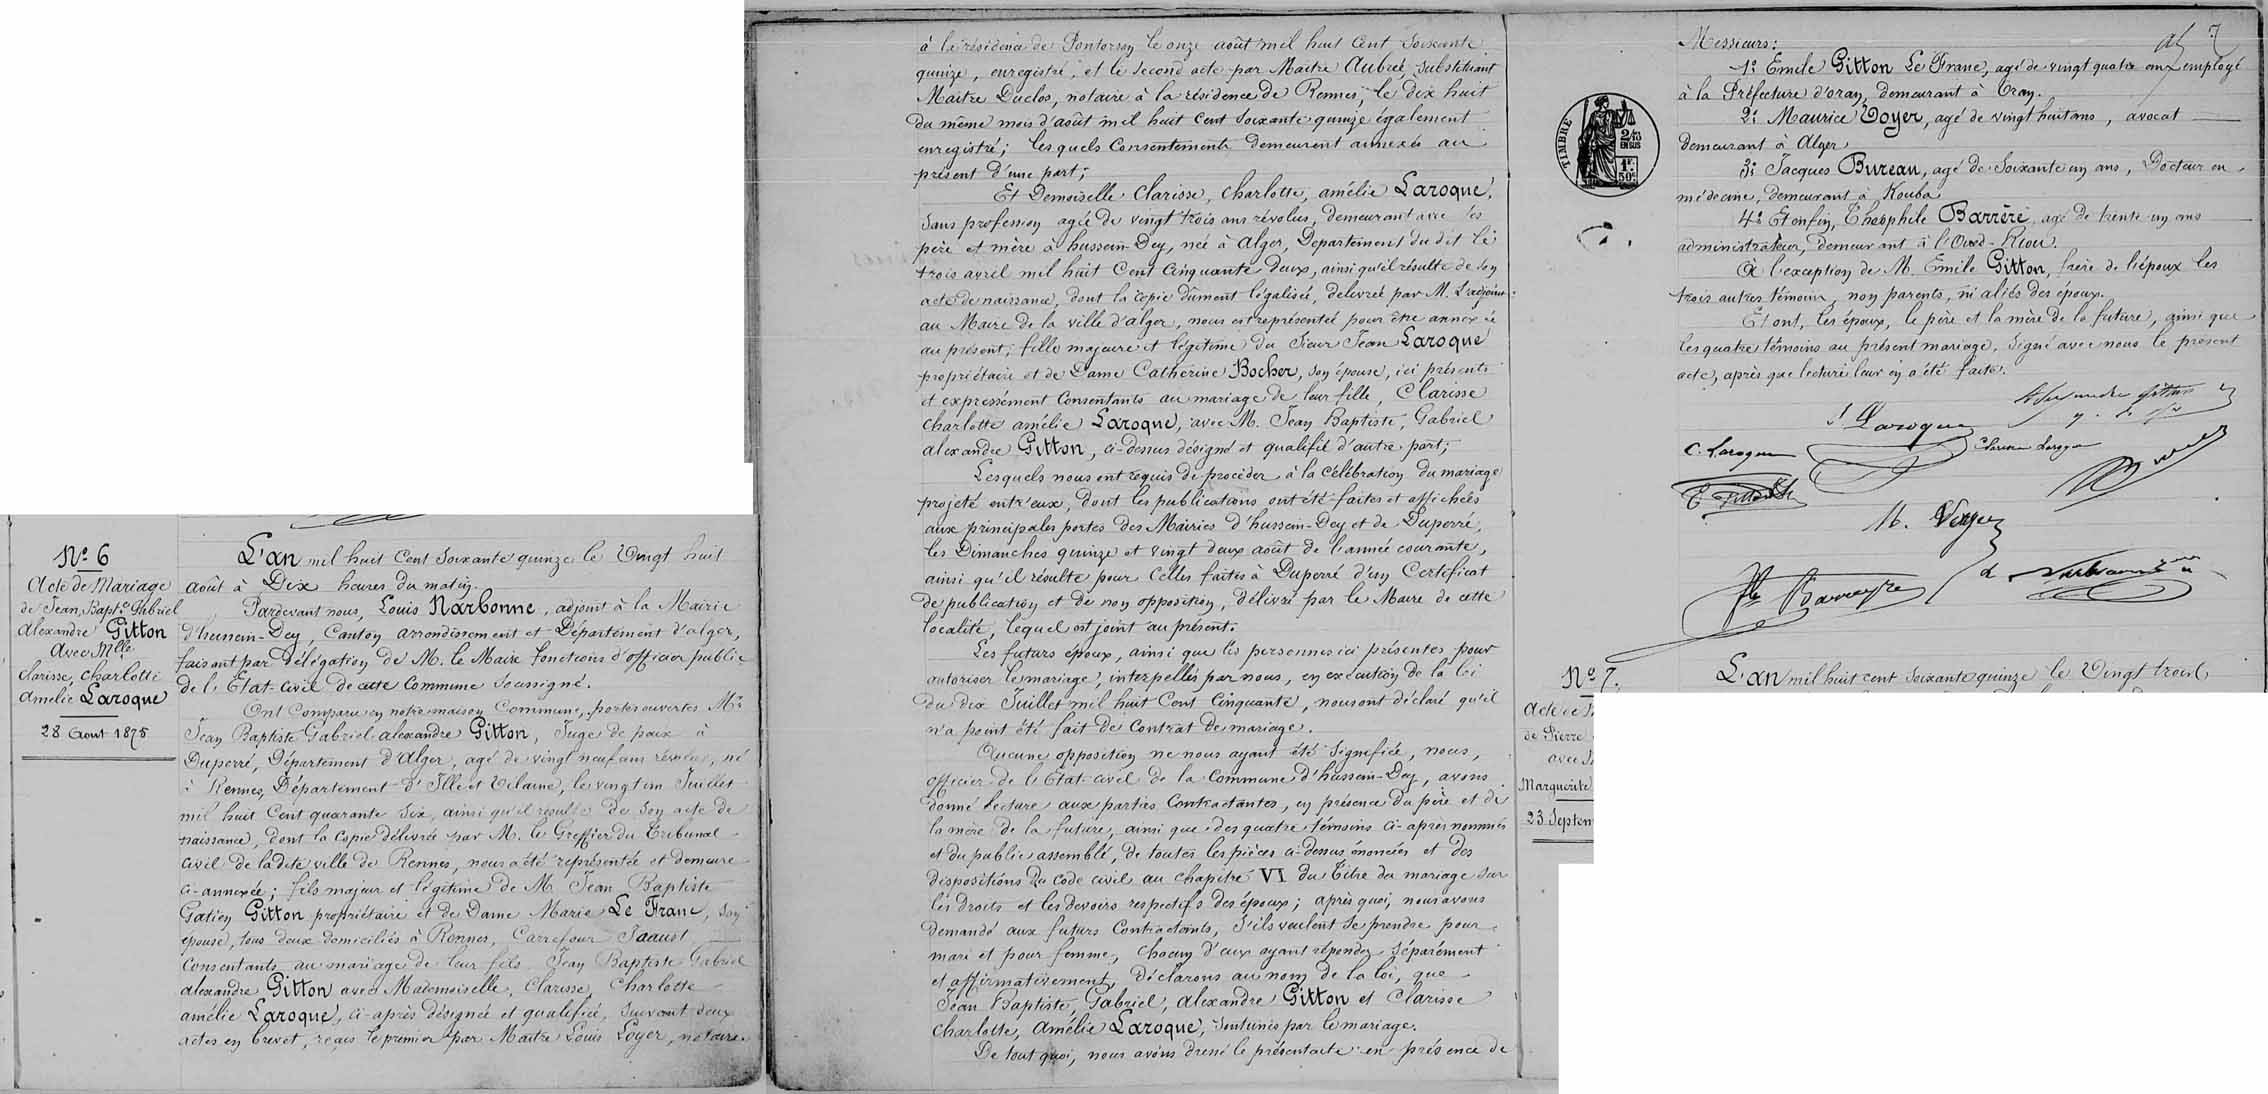 Nº 6
Acte de Mariage
de Jean, Bapt.te Gabriel
Alexandre Gitton
Avec Mlle
Clarisse, Charlotte
Amélie Laroque
28 Aout 1875
L'an mil huit Cent Soixante quinze le Vingt huit
août à Dix heures du matin.
Pardevant nous, Louis Narbonne, adjoint à la Mairie
d'hussein-Dey, Canton arrondissement et Département d'alger,
faisant par délégation de M. le Maire fonctions d'officier public
de l'État-civil de cette Commune Soussigné.
Ont Comparu en notre maison Commune, portes ouvertes Mr.
Jean Baptiste Gabriel alexandre Gitton, Juge de paix à
Duperré, Département d'Alger, agé de vingt neuf ans révolus, né
à Rennes, Département d'Ille et Vilaine, le vingt un Juillet
mil huit Cent quarante Six, ainsi qu'il résulte de Son acte de
naissance, dont la Copie délivrée par M. le Greffier du Tribunal
Civil de ladite ville de Rennes, nous a été représentée et demeure
ci-annexée; fils majeur et légitime de M. Jean Baptiste
Gatien Gitton propriétaire et de Dame Marie Le Franc, Son
épouse, tous deux domiciliés à Rennes, Carrefour
Consentants au mariage de leur fils Jean Baptiste Gabriel
alexandre Gitton avec Mademoiselle, Clarisse, Charlotte
amélie Laroque, ci-après désignée et qualifiée, Suivant deux
actes en brevet, reçus le premier par Maitre Louis Loyer, notaire
à la résidence de Pontorson le onze août mil huit Cent Soixante
quinze, enregistré, et le Second acte par Maitre Aubrée, Substituant
Maitre Duclos, notaire à la résidence de Rennes, le dix huit
du même mois d'août mil huit Cent Soixante quinze également
enregistré; lesquels Consentements demeurent annexés au
présent d'une part;
Et Demoiselle Clarisse, Charlotte, amélie Laroque,
Sans profession agée de vingt trois ans révolus, demeurant avec ses
père et mère à hussein-Dey, née à Alger, Département du dit le
trois avril mil huit Cent Cinquante deux, ainsi qu'il résulte de Son
acte de naissance, dont la Copie dûment légalisée, délivrée par M. L'adjoint
au Maire de la ville d'alger, nous est représentée pour être annexée
au présent; fille majeure et légitime du Sieur Jean Laroque
propriétaire et de Dame Catherine Bocher, Son épouse, ici présents
et expressément Consentants au mariage de leur fille, Clarisse
Charlotte amélie Laroque, avec M. Jean Baptiste, Gabriel
alexandre Gitton, ci-dessus désigné et qualifié d'autre part;
Lesquels nous ont requis de procéder à la Célébration du mariage
projeté entr'eux, dont les publications ont été faites et affichées
aux principales portes des Mairies d'hussein-Dey et de Duperré,
les Dimanches quinze et vingt deux août de l'année courante,
ainsi qu'il résulte pour Celles faites à Duperré d'un Certificat
de publication et de non opposition, délivré par le Maire de cette
localité, lequel est joint au présent.
Les futurs époux, ainsi que les personnes ici présentes pour
autoriser le mariage, interpellés par nous, en exécution de la loi
du dix Juillet mil huit Cent Cinquante, nous ont déclaré qu'il
n'a point été fait de Contrat de mariage.
Aucune opposition ne nous ayant été Signifiée, nous,
officier de l'État-civil de la Commune d'hussein-Dey, avons
donné lecture aux parties Contractantes, en présence du père et de
la mère de la future, ainsi que des quatre témoins ci-après nommés
et du public assemblé, de toutes les pièces ci-dessus énoncées et des
dispositions du Code civil au Chapitre VI du Titre du mariage Sur
les droits et les devoirs respectifs des époux; après quoi, nous avons
demandé aux futurs Contractants, S'ils veulent Se prendre pour
mari et pour femme, Chacun d'eux ayant répondu Séparément
et affirmativement, déclarons au nom de la loi, que
Jean Baptiste, Gabriel, alexandre Gitton et Clarisse
Charlotte, Amélie Laroque, Sont unis par le mariage.
De tout quoi, nous avons dressé le présent acte en présence de
7
Messieurs:
1º Emile Gitton Le Franc, agé de vingt quatre ans employé
à la Préfecture d'oran, demeurant à Oran.
2º Maurice Voyer, agé de vingt huit ans, avocat
demeurant à Alger
3º Jacques Bureau, agé de Soixante un ans, Docteur en
médecine, demeurant à Kouba
4º Et enfin, Théophile Barrère agé de trente un ans
administrateur, demeurant à l'Oued-Riou.
A l'exception de M. Emile Gitton, frère de l'époux les
trois autres témoins, non parents, ni aliés des époux.
Et ont, les époux, le père et la mère de la future, ainsi que
les quatre témoins au présent mariage, Signé avec nous le présent
acte, après que lecture leur en a été faite.
TIMBRE
2/10
EN SUS
1F.
50c.
J Laroque
Alexandre Gitton
C. Laroque
Clarisse Laroque
M. Voyer
L Narbonne
Nº 7.
Acte de
de Pierre
avec
Marguerite
23 Septem
L'an mil huit cent Soixante quinze le Vingt trois